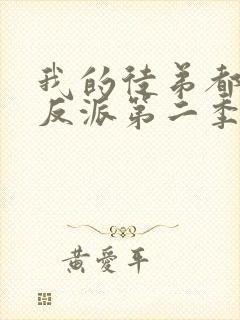 我的徒弟都
反派第二季
黄爱平